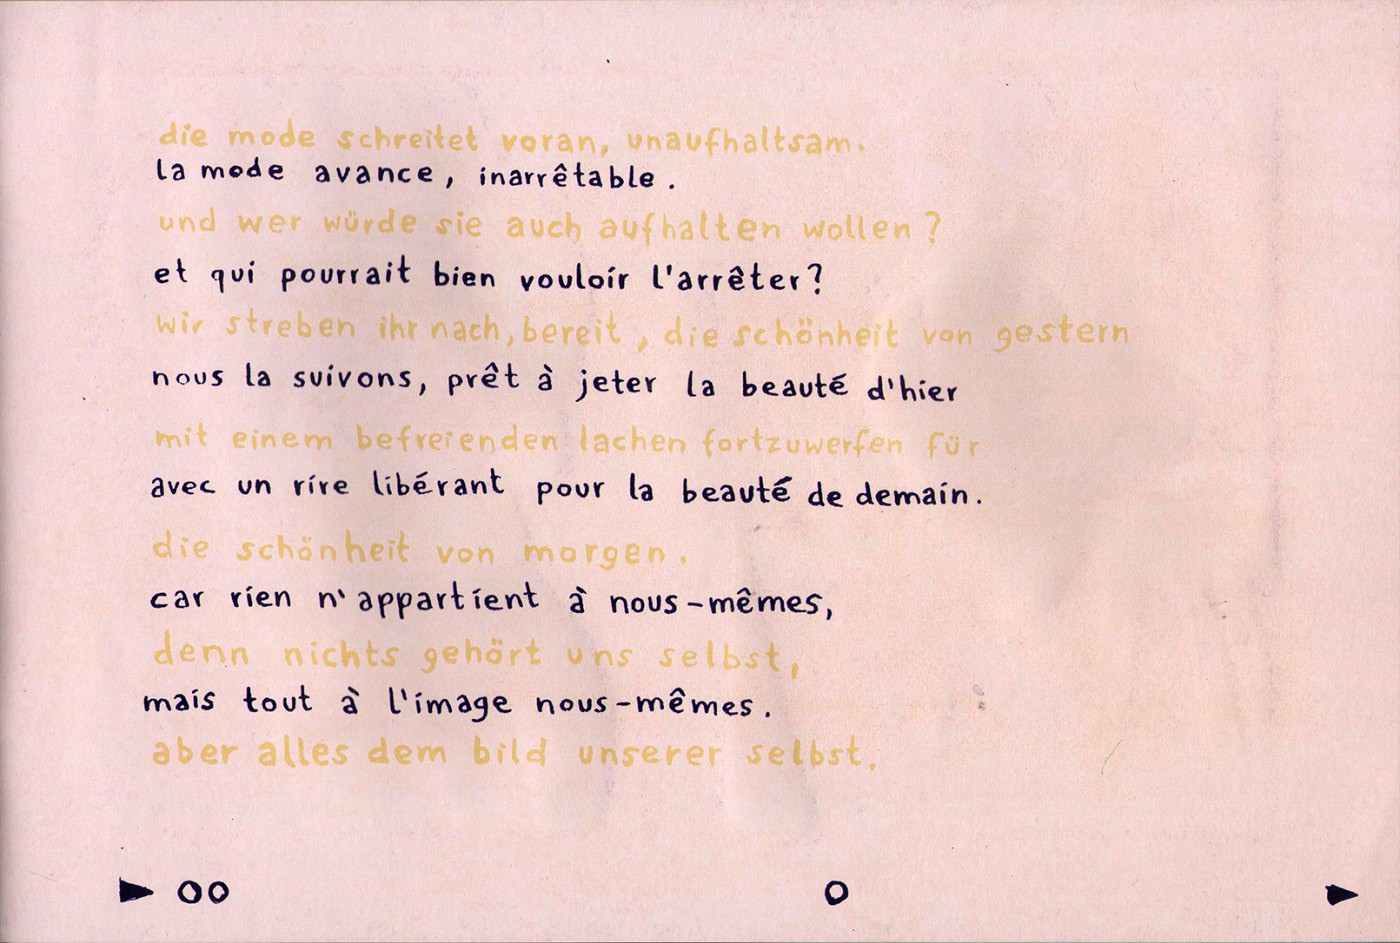 die mode schreitet voran, unaufhaltsam.
la mode avance, inarrêtable.
und wer würde sie auch aufhalten wollen?
et qui pourrait bien vouloir l'arrêter?
wir streben ihr nach, bereit, die schönheit von gestern
nous la suivons, prêt à jeter la beauté d'hier
mit einem befreienden lachen fortzuwerfen für
avec un rire libérant pour la beauté de demain.
die schönheit von morgen.
car rien n'appartient à nous-mêmes,
denn nichts gehört uns selbst,
mais tout à l'image nous-mêmes.
aber alles dem bild unserer selbst.